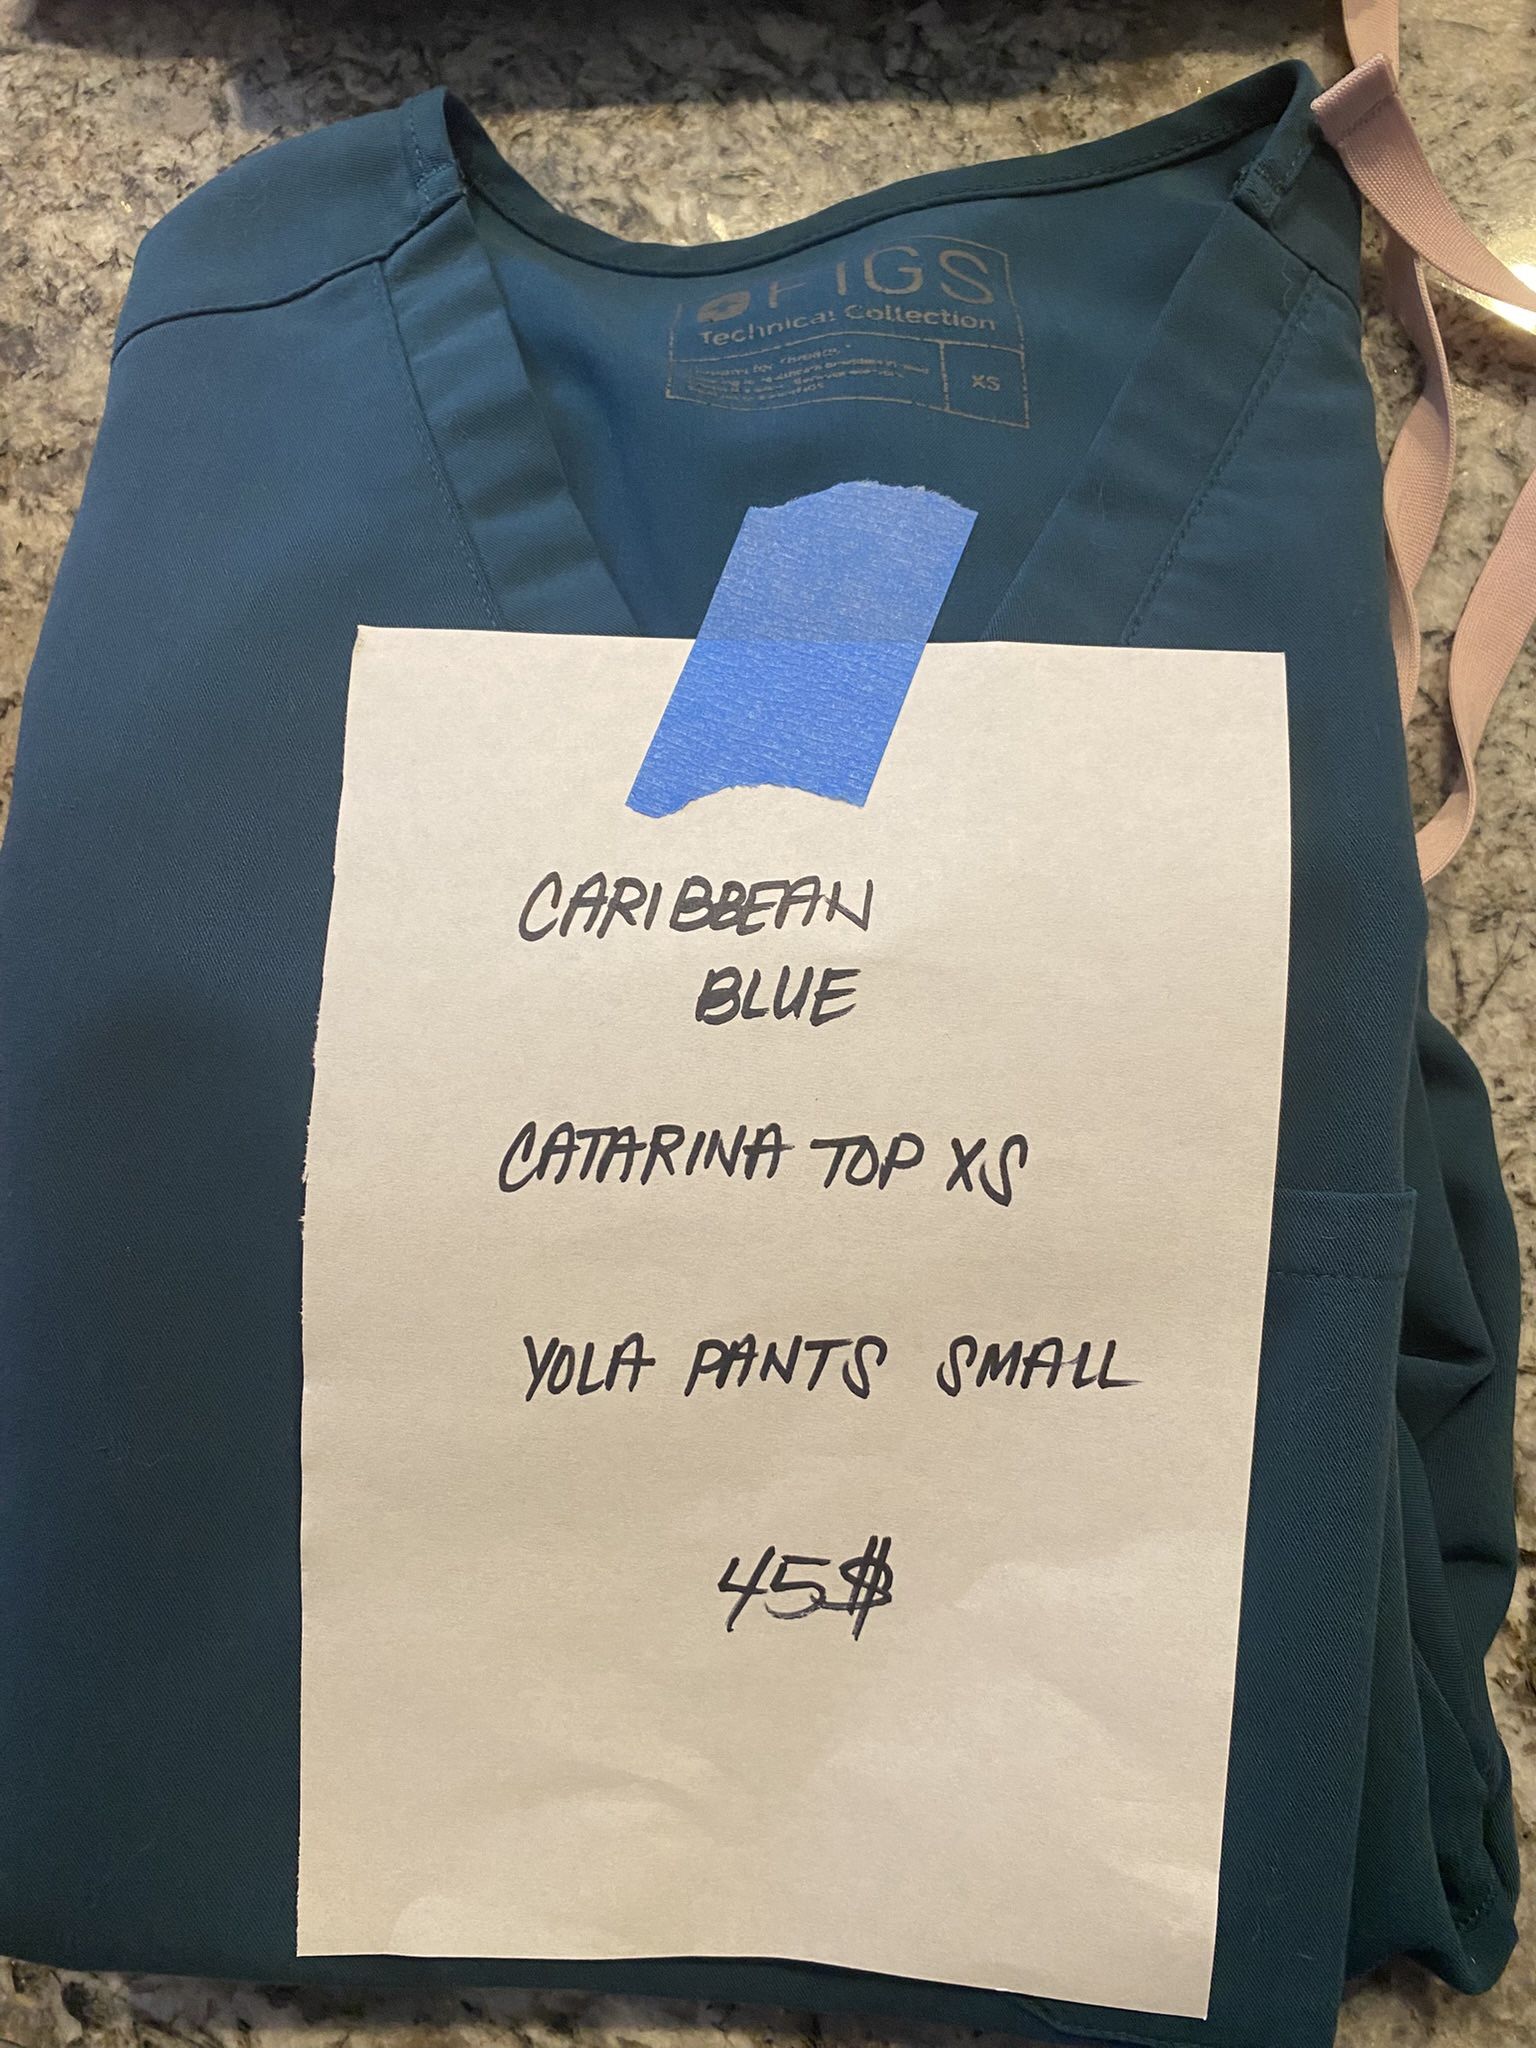 FIGS
Technical Collection
XS
CARIBBEAN
BLUE
CATARINA TOP XS
YOLA PANTS SMALL
45$